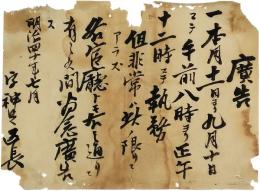 廣告
一本月十一日ヨリ九月十日
マテ午前八時ヨリ正午
十二時マテ執務
但非常ハ此ノ限リニ
アラズ
各官廳ト モ 通リニ
有之候間為念廣告ス
明治四十年七月
字神 区長